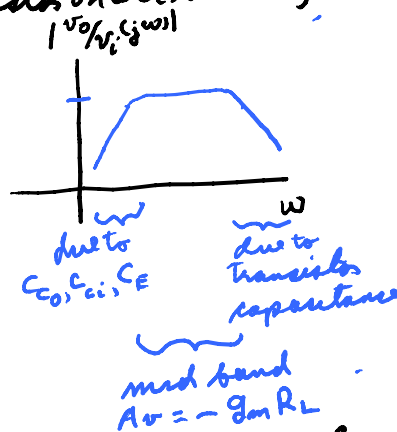 |vo/vi (jω)|
ω
due to
Cco, Cci, CE
due to
transistor
capacitance
mid band
Av = - gm RL